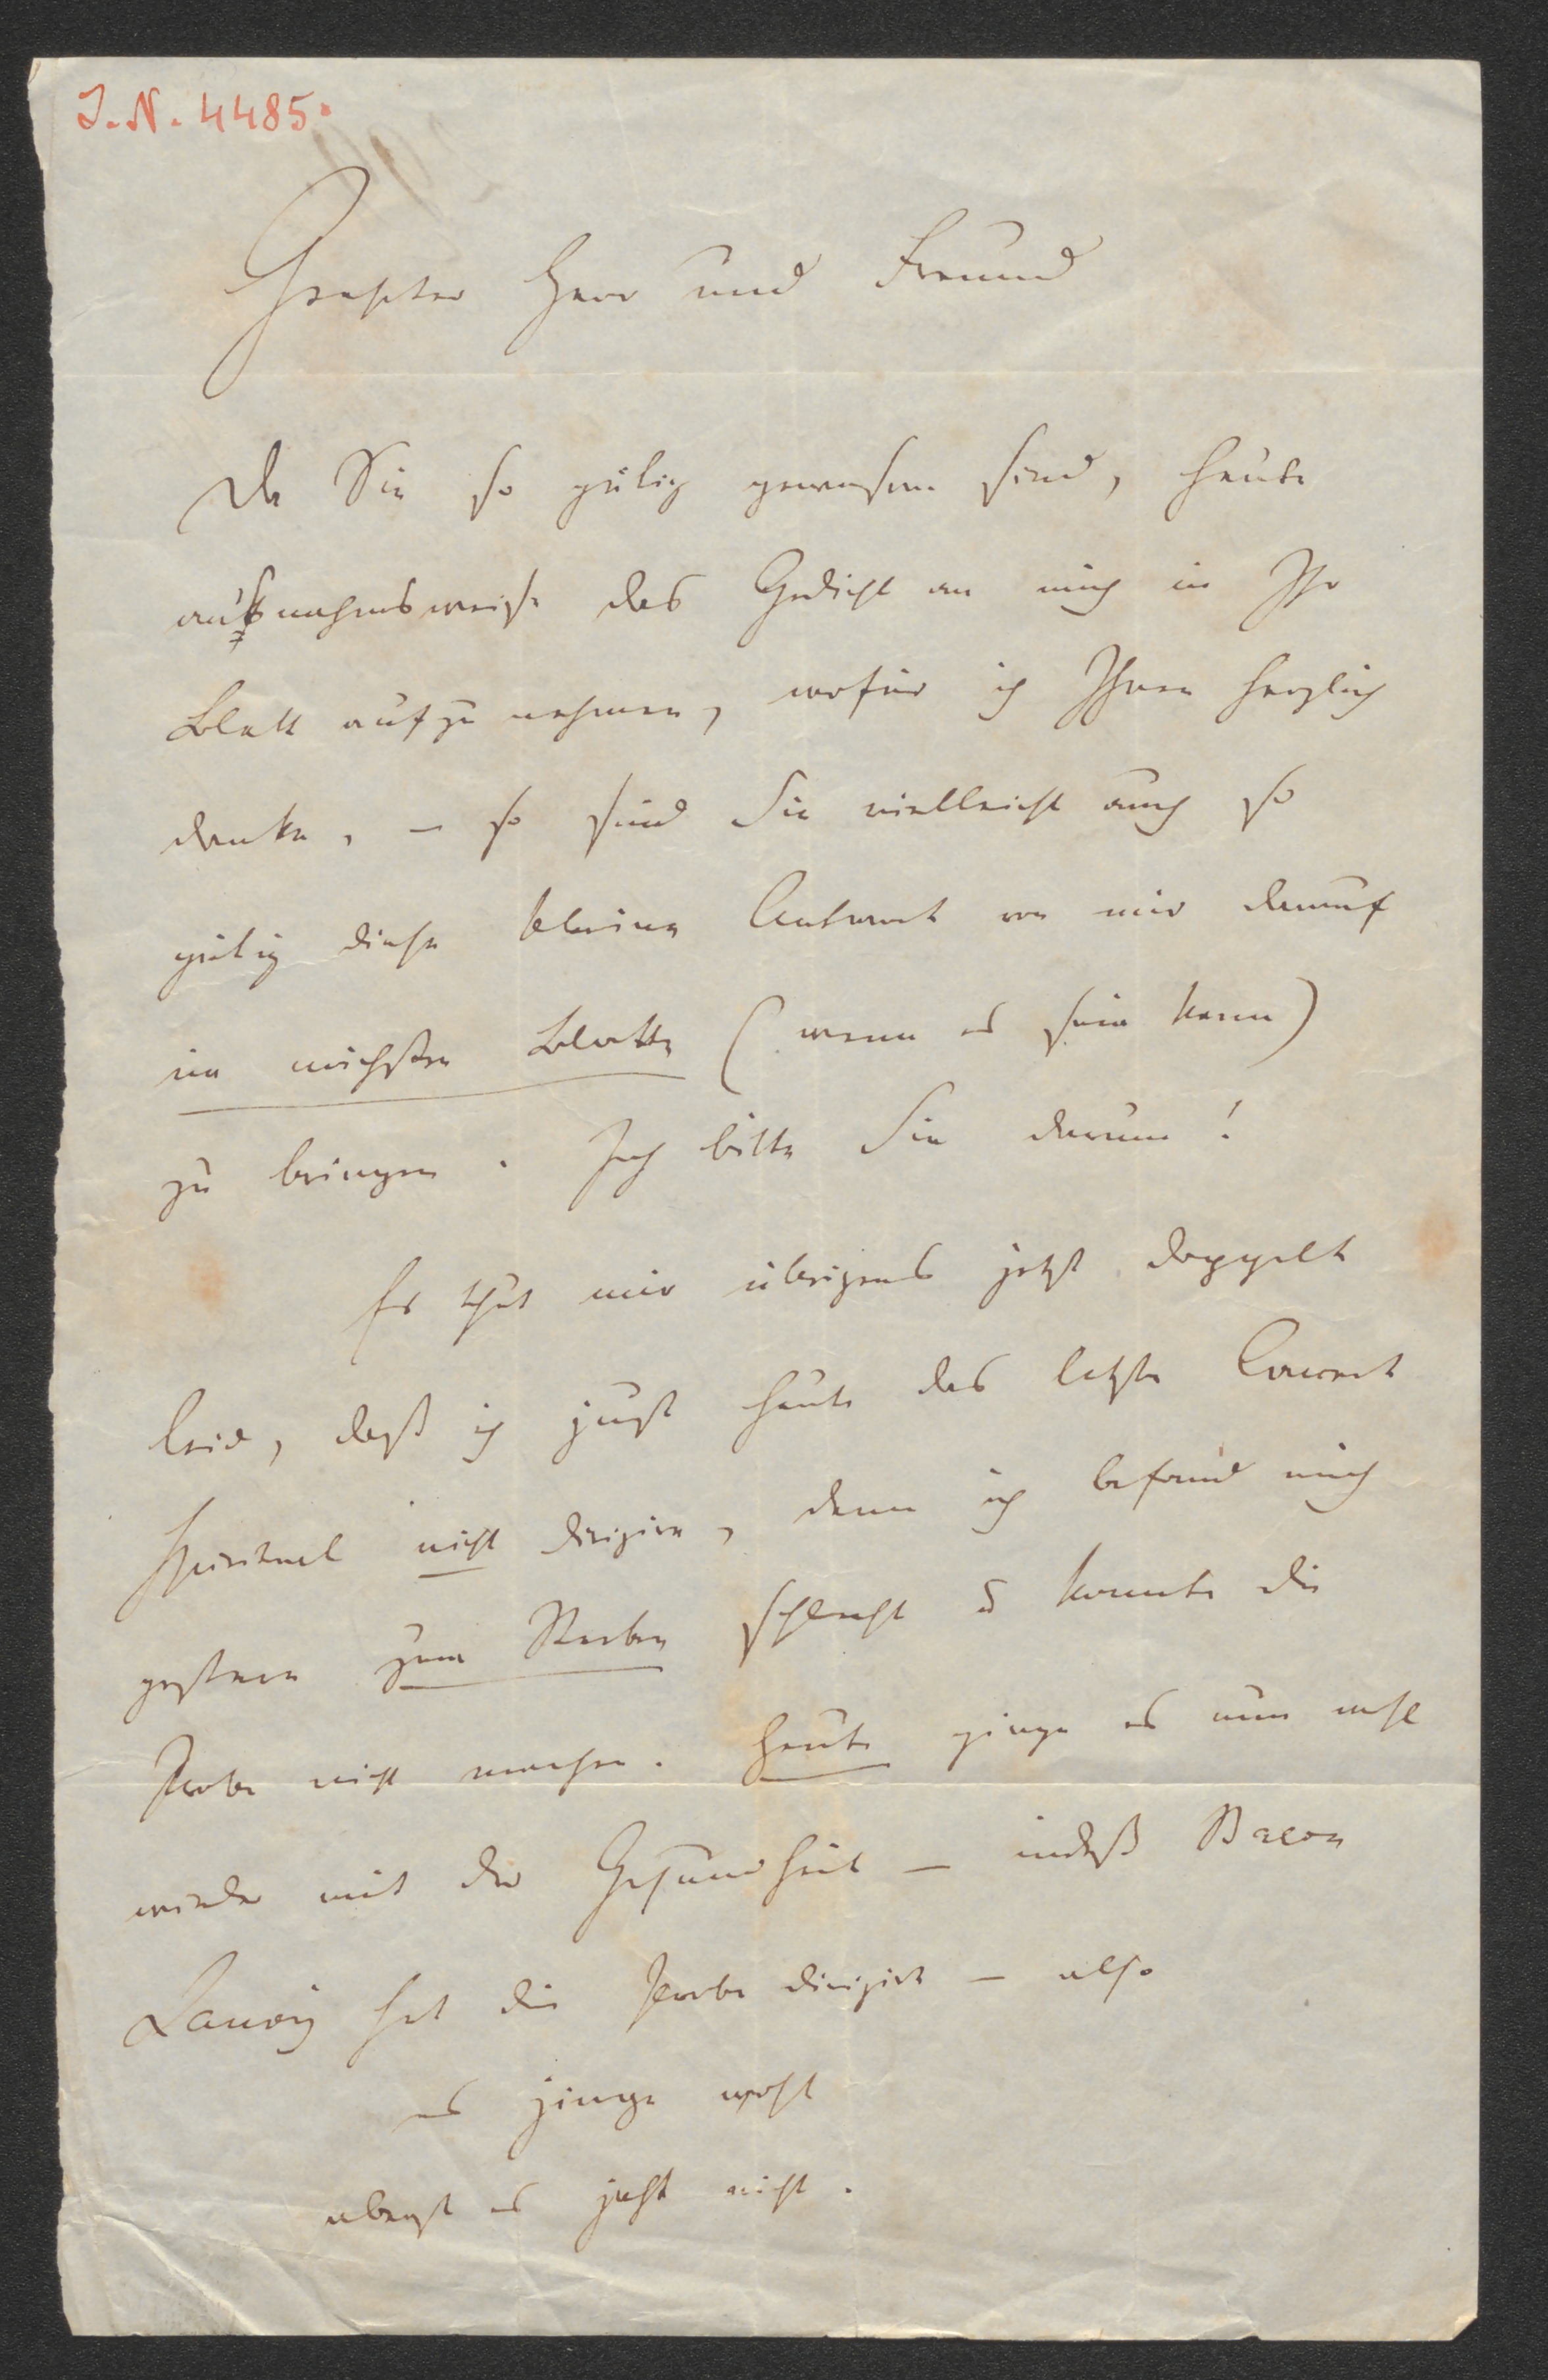 I.N. 4485.
Geehrter Herr und Freund
Da Sie so gütig gewesen sind, heute
ausnahmsweise das Gedicht an mich in Ihr
Blatt aufzunehmen, wofür ich Ihnen herzlich
danke, – so sind Sie vielleicht auch so
gütig diese kleine Antwort von mir darauf
im nächsten Blatte (wenn es sein kann)
zu bringen. Ich bitte Sie darum!
Es thut mir übrigens jetzt doppelt
leid, daß ich just heute das letzte Concert
spirituel nicht dirigire, denn ich befand mich
gestern zum Sterben schlecht u konnte die
Probe nicht machen. Heute ginge es nun wohl
wieder mit der Gesundheit – indeß Baron
Lannoy hat die Probe dirigirt – also
es ginge wohl
aber es geht nicht.